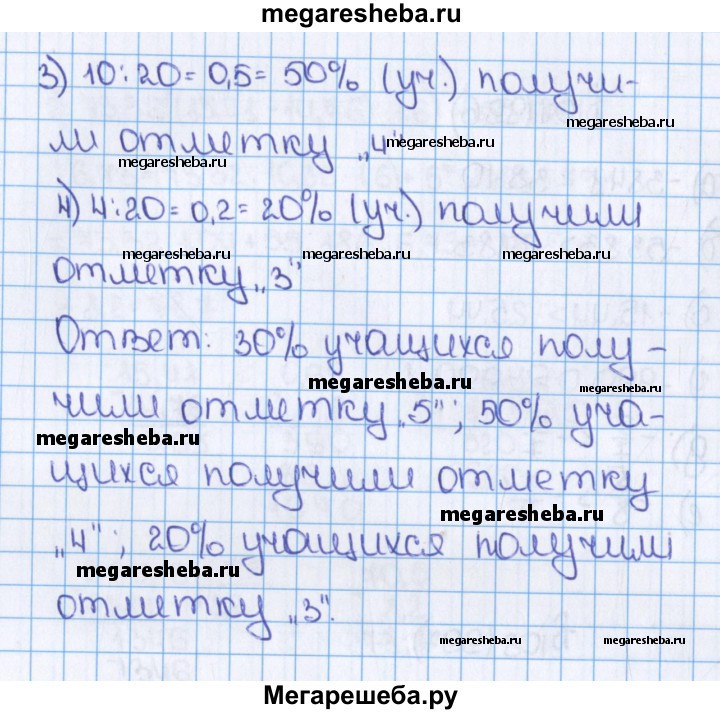 megaresheba.ru
3) 10:20=0,5=50% (уч.) получи-
megaresheba.ru
ли отметку „4"
megaresheba.ru
4) 4:20=0,2=20% (уч.) получили
megaresheba.ru megaresheba.ru
отметку „3"
Ответ: 30% учащихся полу-
megaresheba.ru megaresheba.ru
чили отметку „5"; 50% уча-
megaresheba.ru
щихся получили отметку
megaresheba.ru
„4"; 20% учащихся получили
megaresheba.ru
отметку „3".
megaresheba.ru megaresheba.ru
Мегарешеба.ру